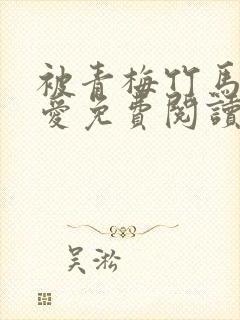 被青梅竹马
爱免費閱讀
吴淞